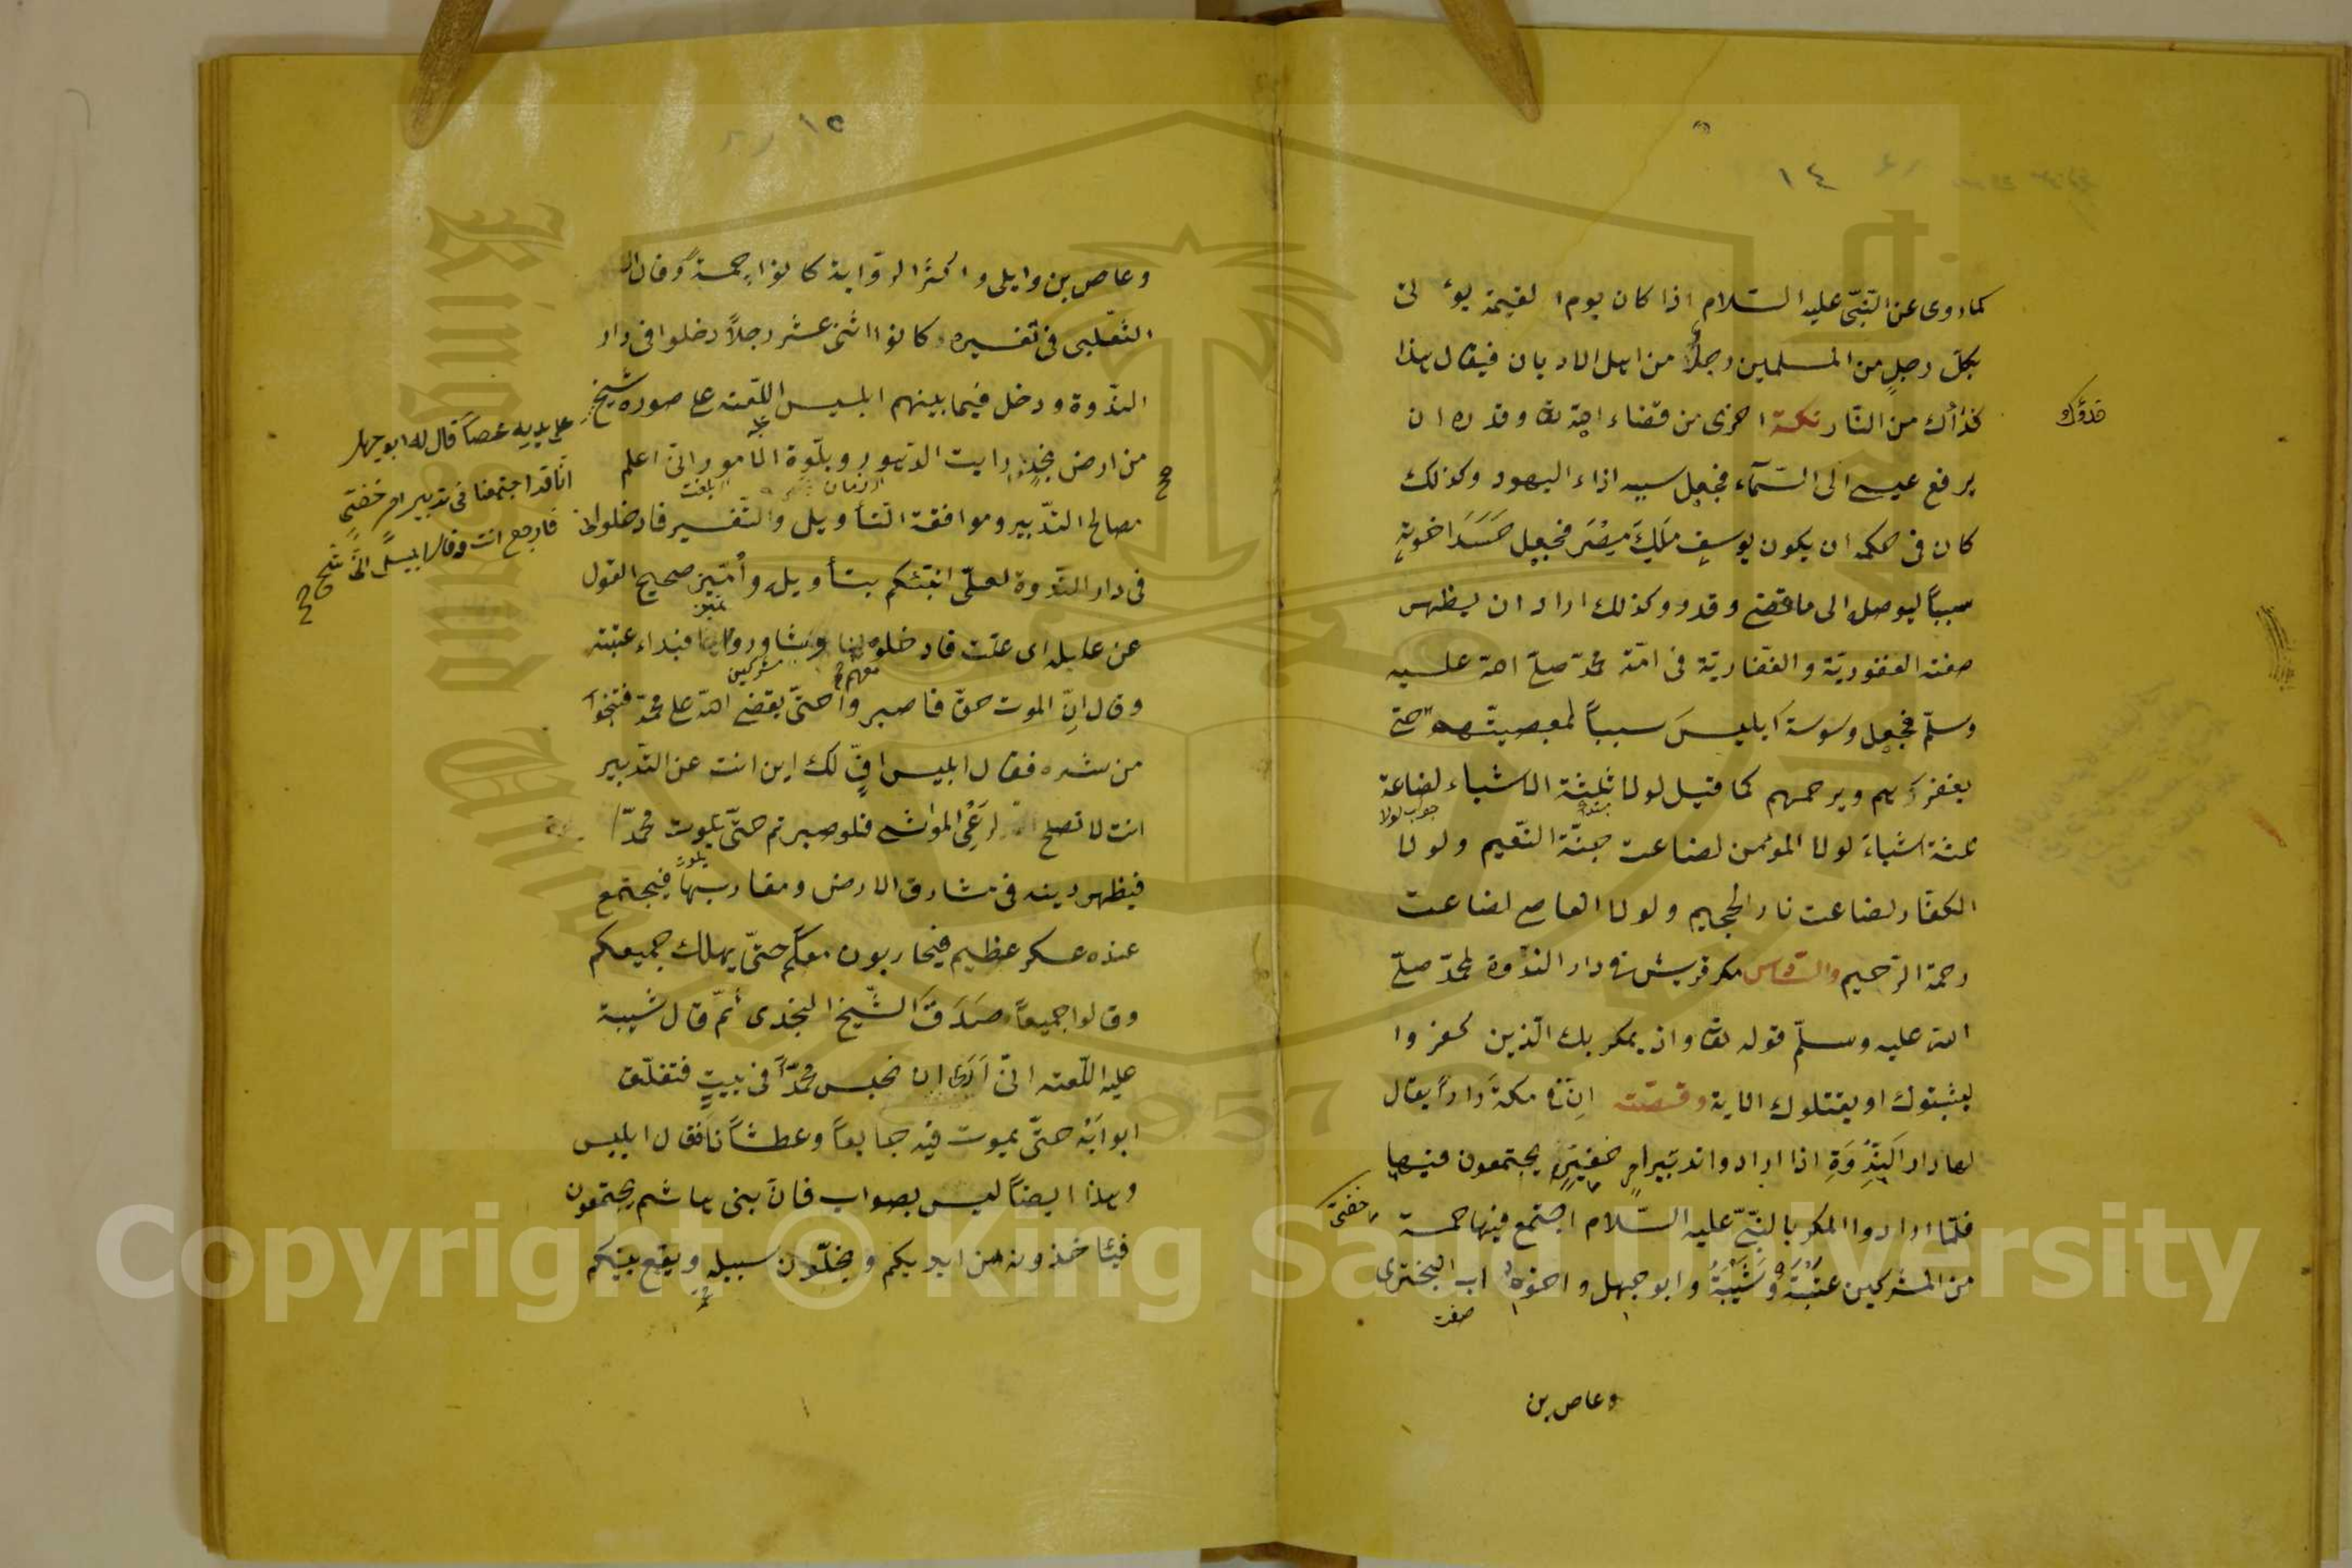 ١٤
كما روى عن النبّى عليه السّلام اذا كان يوم القيمة يؤ لى
بكلّ رجلٍ من المسلمين رجلاً من اهل الاديان فيقال هذا
فداؤك
فداؤك من النّار نكتة اخرى من قضاء الله تعا وقدره ان
يرفع عيسى الى السّمآء فجعل سببه اذاء اليهود وكذلك
كان فى حكمه ان يكون يوسف مَلِكَ مِصْرَ فجعل حَسَدَ اخوته
سبباً ليوصل الى ما قضى وقدر وكذلك اراد ان يظهر
صفته الغفوريّة والغفّاريّة فى امّة محمّد صلّى الله عليه
وسلّم فجعل وسوسة ابليسَ سبباً لمعصيتهم حتى
يغفر لهم ويرحمهم كما قيل لولا ثلثة الاشياء لضاعة
جواب لولا
ثلثة اشياءَ لولا المؤمن لضاعت جنّة النّعيم ولولا
الكفّار لضاعت نار الجحيم ولولا العاصى لضاعت
رحمة الرّحيم والسّادس مكر قريش فى دار النّدوة لمحمّد صلّى
الله عليه وسلّم قوله تعا واذ يمكر بك الّذين كفروا
ليثبتوك او يقتلوك الاية وقصّته انّ فى مكةَ داراً يقال
لها دار النّدوَةِ اذا ارادوا تدبير امرٍ خفيّةٍ يجتمعون فيها
خفىّ
فلمّا ارادوا المكر بالنبىّ عليه السّلام اجتمع فيها خمسة
من المشركين عتبةُ وشَيْبَةُ وابو جهل واخوه اب البخترى
صفت
وعاص بن
١٥
وعاص بن وايلى واكثر الرّواية كانوا خمسةً وقال ال
الثّعلبى فى تفسيره وكانوا اثنى عشر رجلاً دخلوا فى دار
النّدوة ودخل فيما بينهم ابليس اللّعنة على صورة شيخٍ
على يديه عصاً قال له ابو جهل
انّا قد اجتمعنا فى تدبير امر خفىّ
فارجع انت وقال ابليس انّى شيخ
صح
من ارض نجدٍ رايت الدّهور وبلوة الامور انى اعلم
مصالح التّدبير وموافقة التّأويل والتّفسير فادخلونى
فى دار النّدوة لعلّى انبّئكم بتأويل وأمّيز صحيح القول
عن عليله اى علّت فادخلوه فبداء عتبة
مشركين
وقال انّ الموت حقّ فاصبروا حتّى يقضى الله على محمّد فتنجوا
من شره فقال ابليس افٍّ لك اين انت عن التّدبير
انت لا تصلح لرَعْىِ المواشى فلو صبرتم حتّى يموت محمّد
فيظهر دينه فى مشارق الارض ومغاربها فيجتمع
عنده عسكر عظيم فيحاربون معكم حتّى يهلك جميعكم
وقالوا جميعاً صَدَقَ الشّيخ النجدى ثمّ قال شيبة
عليه اللّعنه انّى اَرَى ان نحبس محمّداً فى بيتٍ فتغلّق
ابوابَه حتّى يموت فيه جايعاً وعطشاناً فقال ابليس
وهذا ايضاً ليس بصواب فانّ بنى هاشم يجتمعون
فيئاخذونه من ايديكم ويخلّون سبيله ويقع بينكم